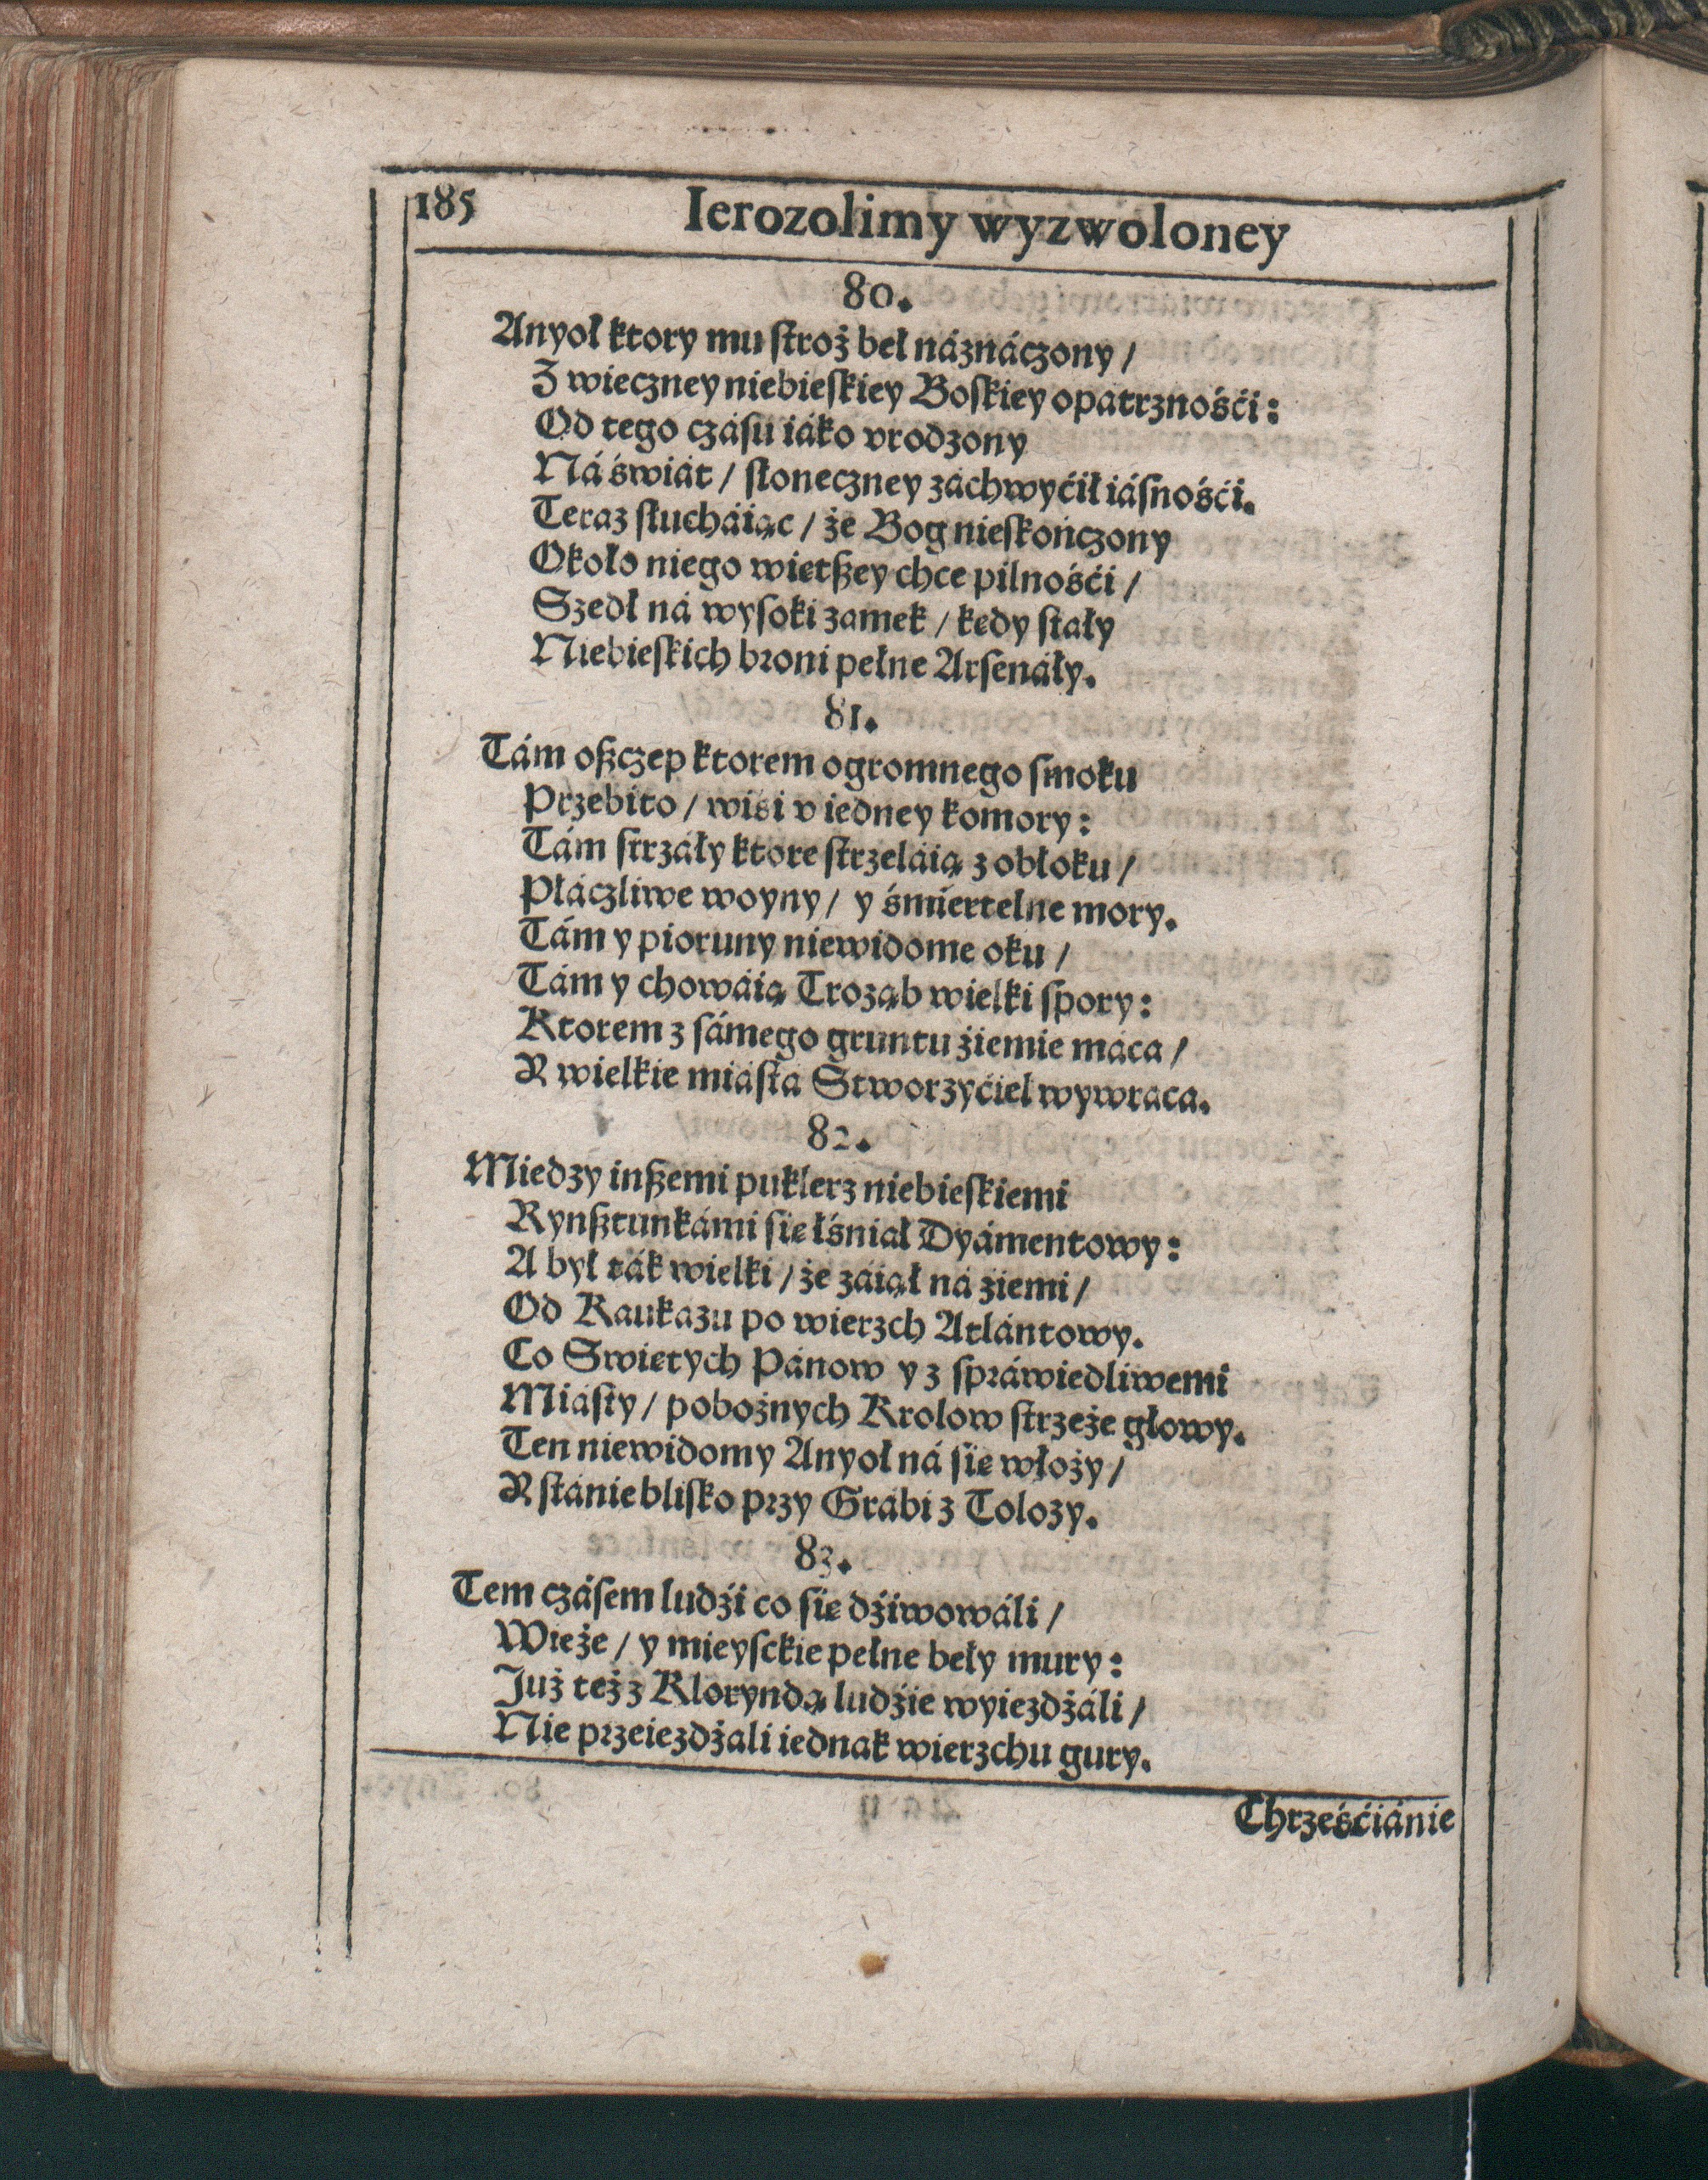 185 Ierozolimy wyzwoloney
80.
Anyoł ktory mu stroż beł náznáczony /
Z wieczney niebieskiey Boskiey opatrznośći:
Od tego czásu iáko vrodzony
Ná świát / słoneczney záchwyćił iásnośći.
Teraz słucháiąc / że Bog nieskończony
Około niego wietßey chce pilnośći /
Szedł ná wysoki zamek / kedy stały
Niebieskich broni pełne Arsenały.
81.
Tám oßczep ktorem ogromnego smoku
Przebito / wisi v iedney komory:
Tám strzáły ktore strzeláią z obłoku /
Płáczliwe woyny / y śmiertelne mory.
Tám y pioruny niewidome oku /
Tám y chowáią Troząb wielki spory:
Ktorem z sámego gruntu źiemie máca /
Y wielkie miásta Stworzyćiel wywraca.
82.
Miedzy inßemi puklerz niebieskiemi
Rynßtunkámi sie łśniał Dyámentowy:
A był ták wielki / że záiął ná źiemi /
Od Kaukazu po wierzch Atlántowy.
Co Swietych Pánow y z spráwiedliwemi
Miásty / pobożnych Krolow strzeże głowy.
Ten niewidomy Anyoł ná sie włoży /
Y stánie blisko przy Grábi z Tolozy.
83.
Tem czásem ludźi co sie dźiwowáli /
Wieże / y mieysckie pełne beły mury:
Już też z Kloryndą ludźie wyiezdżáli /
Nie przeiezdżali iednak wierzchu gury.
Chrześćiánie